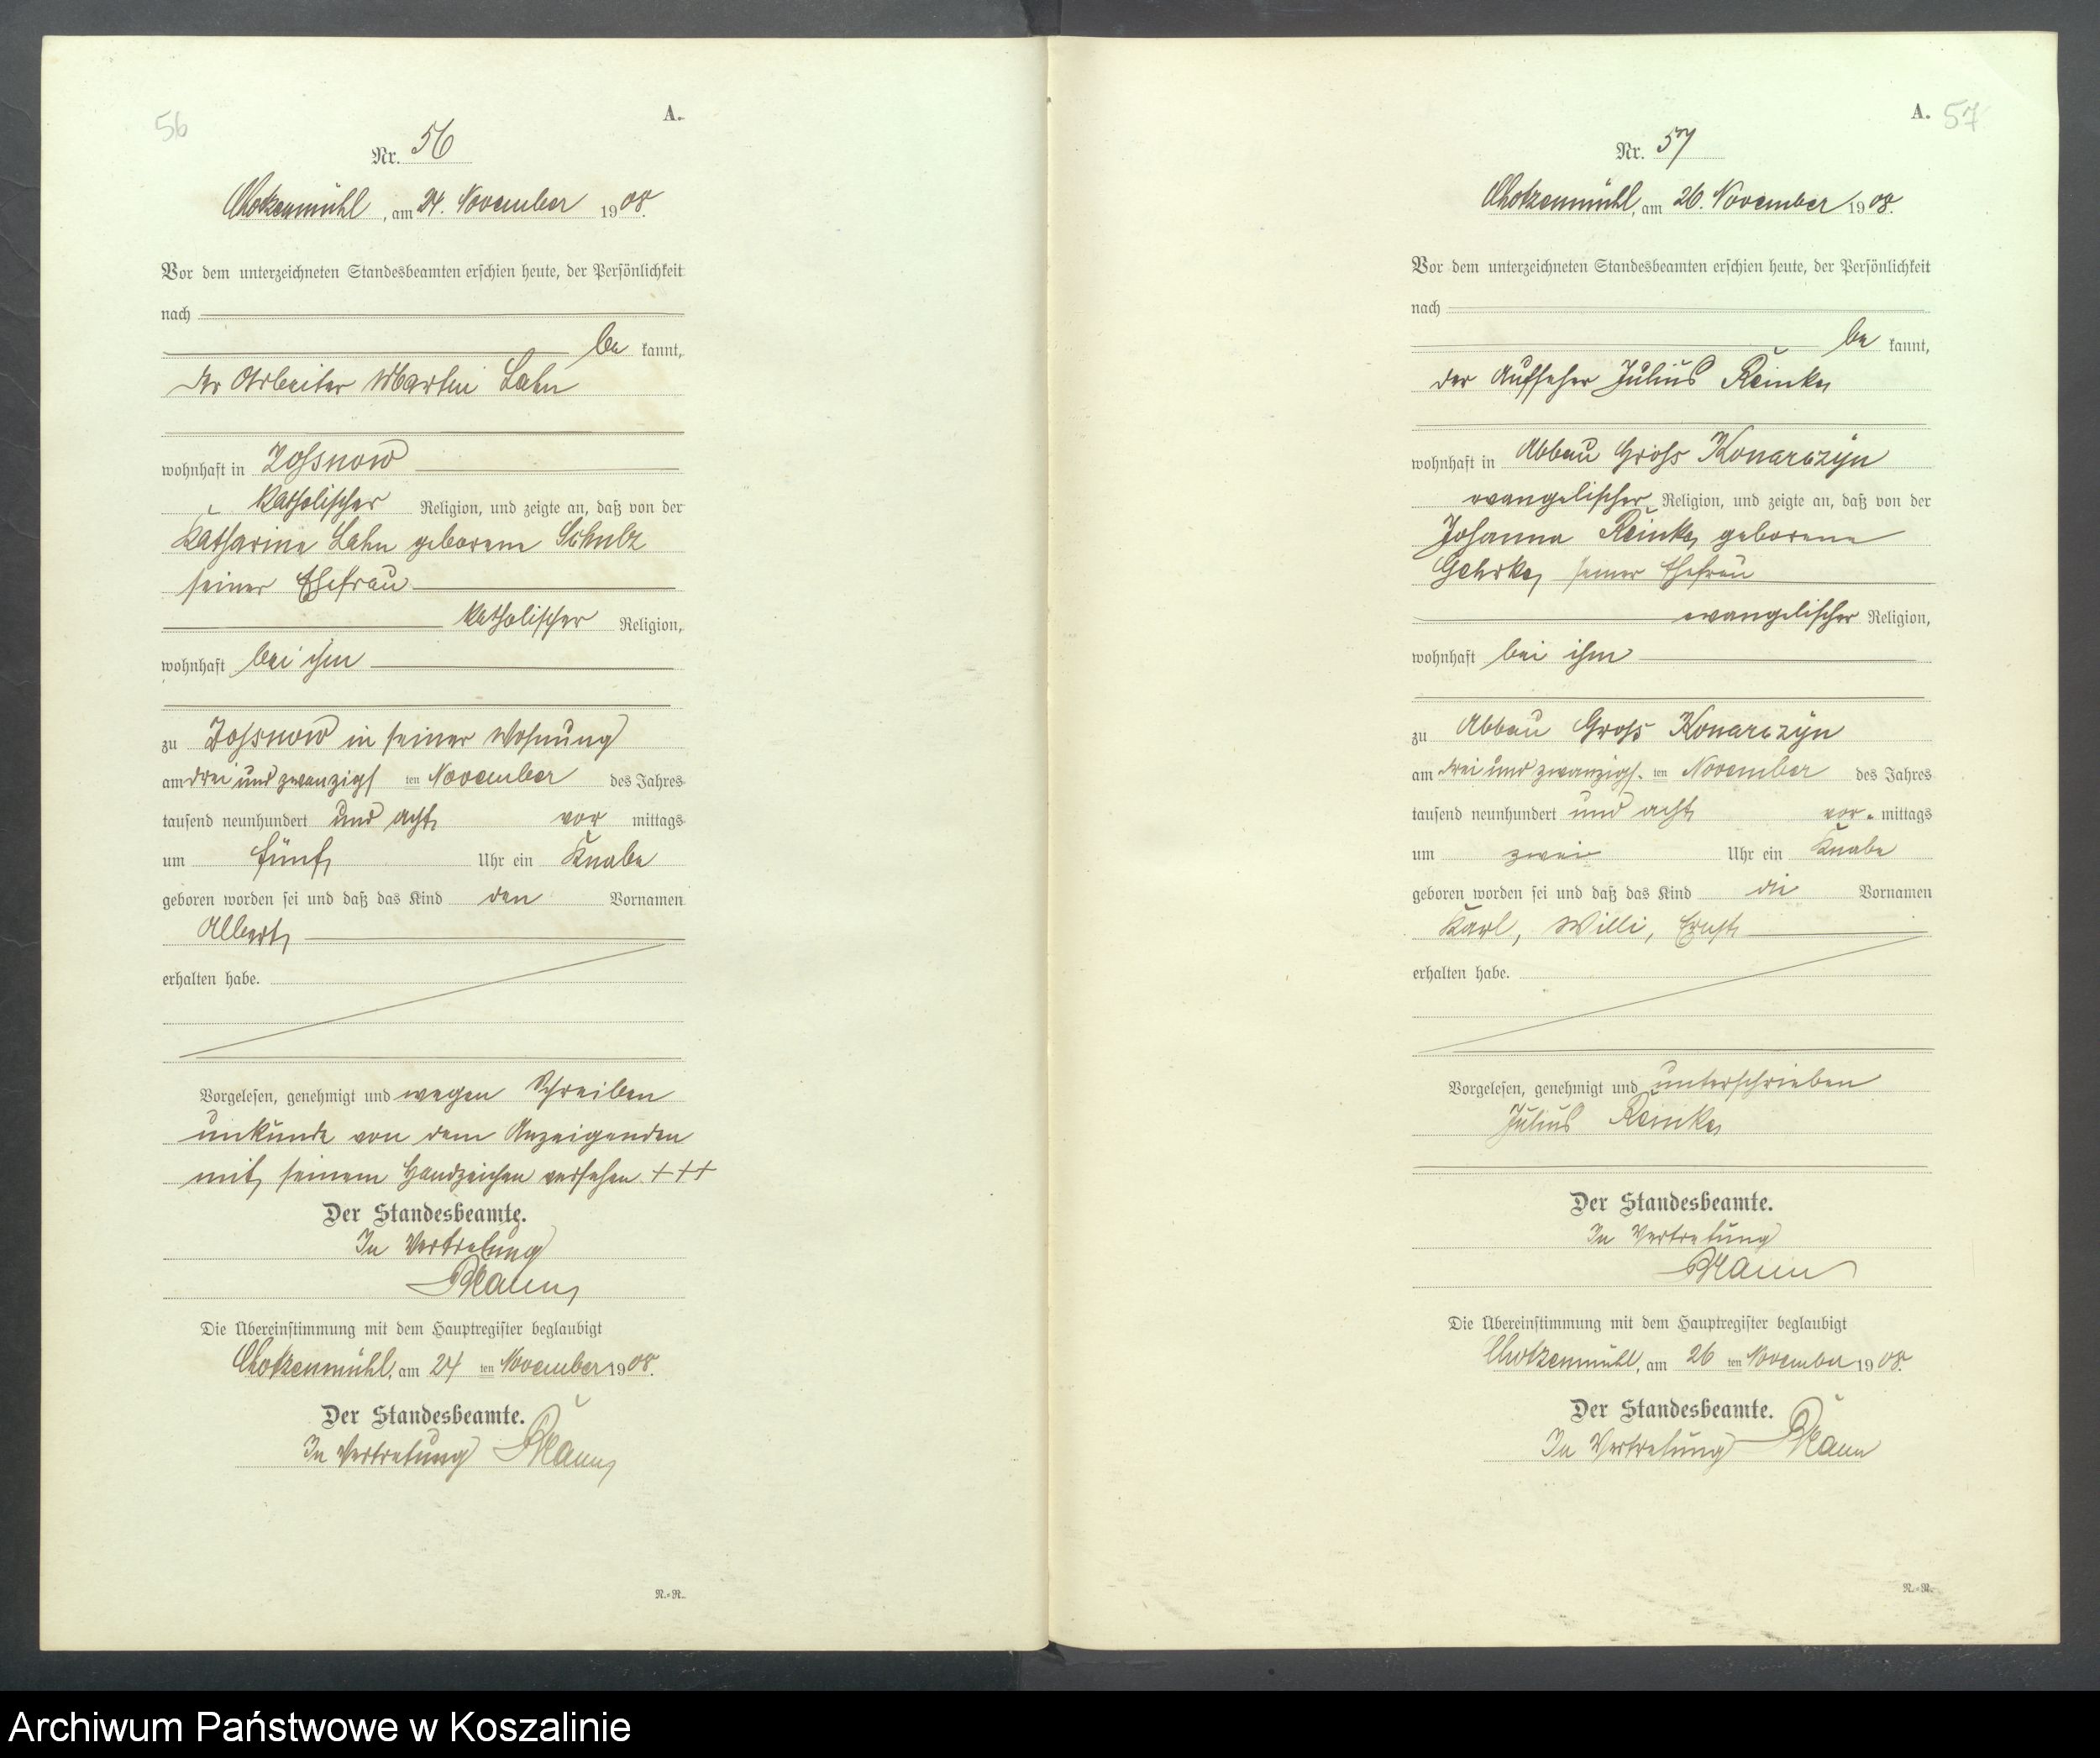 56
A.
Nr. 56
Chotzenmühl, am 24. November 1908.
Vor dem unterzeichneten Standesbeamten erschien heute, der Persönlichkeit
nach
be kannt,
der Arbeiter Martin Lahn
wohnhaft in Zossnow
katholischer Religion, und zeigte an, daß von der
Katharina Lahn geborene Schulz
seiner Ehefrau
katholischer Religion,
wohnhaft bei ihm
zu Zossnow in seiner Wohnung
am drei und zwanzigsten November des Jahres
tausend neunhundert und acht vor mittags
um fünf Uhr ein Knabe
geboren worden sei und daß das Kind den Vornamen
Albert
erhalten habe.
Vorgelesen, genehmigt und wegen Schreiben
unkunde von dem Anzeigenden
mit seinem Handzeichen versehen. +++
Der Standesbeamte.
In Vertretung
Die Übereinstimmung mit dem Hauptregister beglaubigt
Chotzenmühl, am 24 ten November 1908.
Der Standesbeamte.
In Vertretung
N.=N.
A. 57
Nr. 57
Chotzenmühl, am 26. November 1908.
Vor dem unterzeichneten Standesbeamten erschien heute, der Persönlichkeit
nach
be kannt,
der Aufseher Julius Reinke
wohnhaft in Abbau Gross Konarczyn
evangelischer Religion, und zeigte an, daß von der
Johanna Reinke geborene
Gehrke, seiner Ehefrau
evangelischer Religion,
wohnhaft bei ihm
zu Abbau Gross Konarczyn
am drei und zwanzigs. ten November des Jahres
tausend neunhundert und acht vor= mittags
um zwei Uhr ein Knabe
geboren worden sei und daß das Kind die Vornamen
Karl, Willi, Ernst
erhalten habe.
Vorgelesen, genehmigt und unterschrieben
Julius Reinke
Der Standesbeamte.
In Vertretung
Die Übereinstimmung mit dem Hauptregister beglaubigt
Chotzenmühl, am 26 ten November 1908.
Der Standesbeamte.
In Vertretung
N.=N.
Archiwum Państwowe w Koszalinie